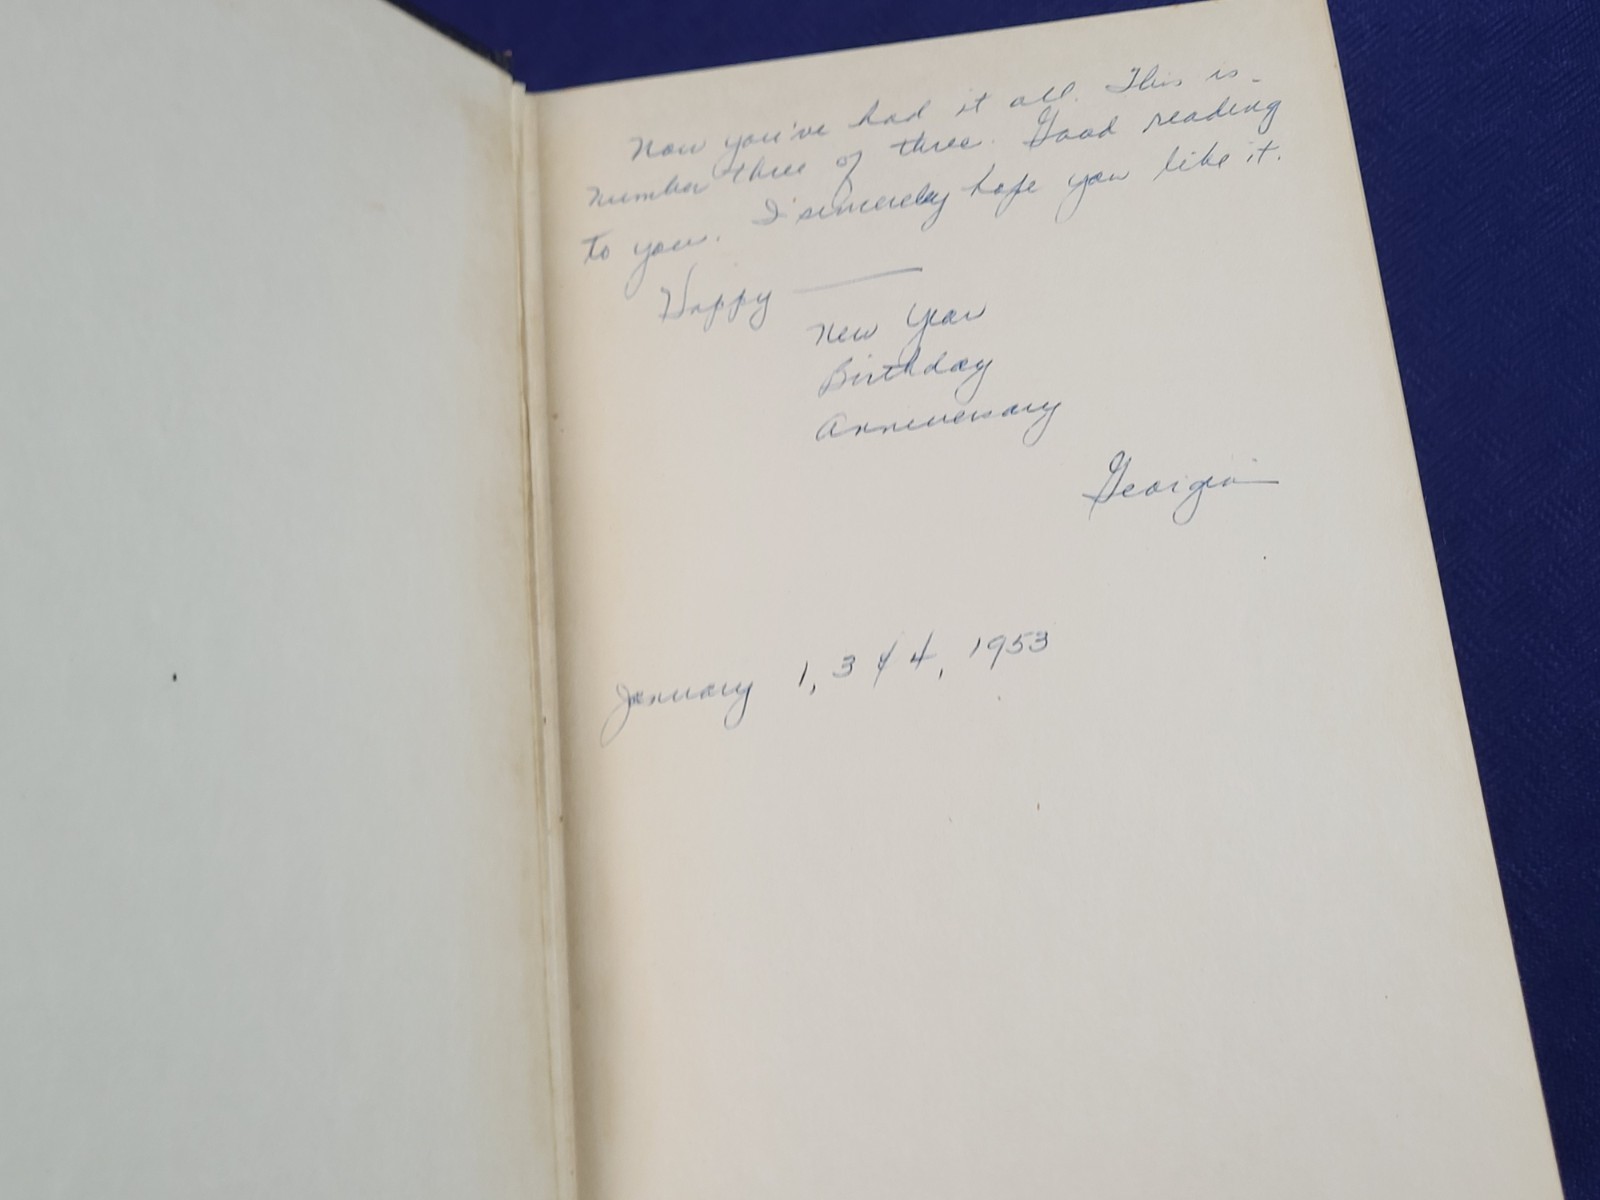 Now you've had it all. This is -
number three of three. Good reading
to you. I sincerely hope you like it.
Happy ———
New Year
Birthday
Anniversary
Georgia
January 1, 3 & 4, 1953